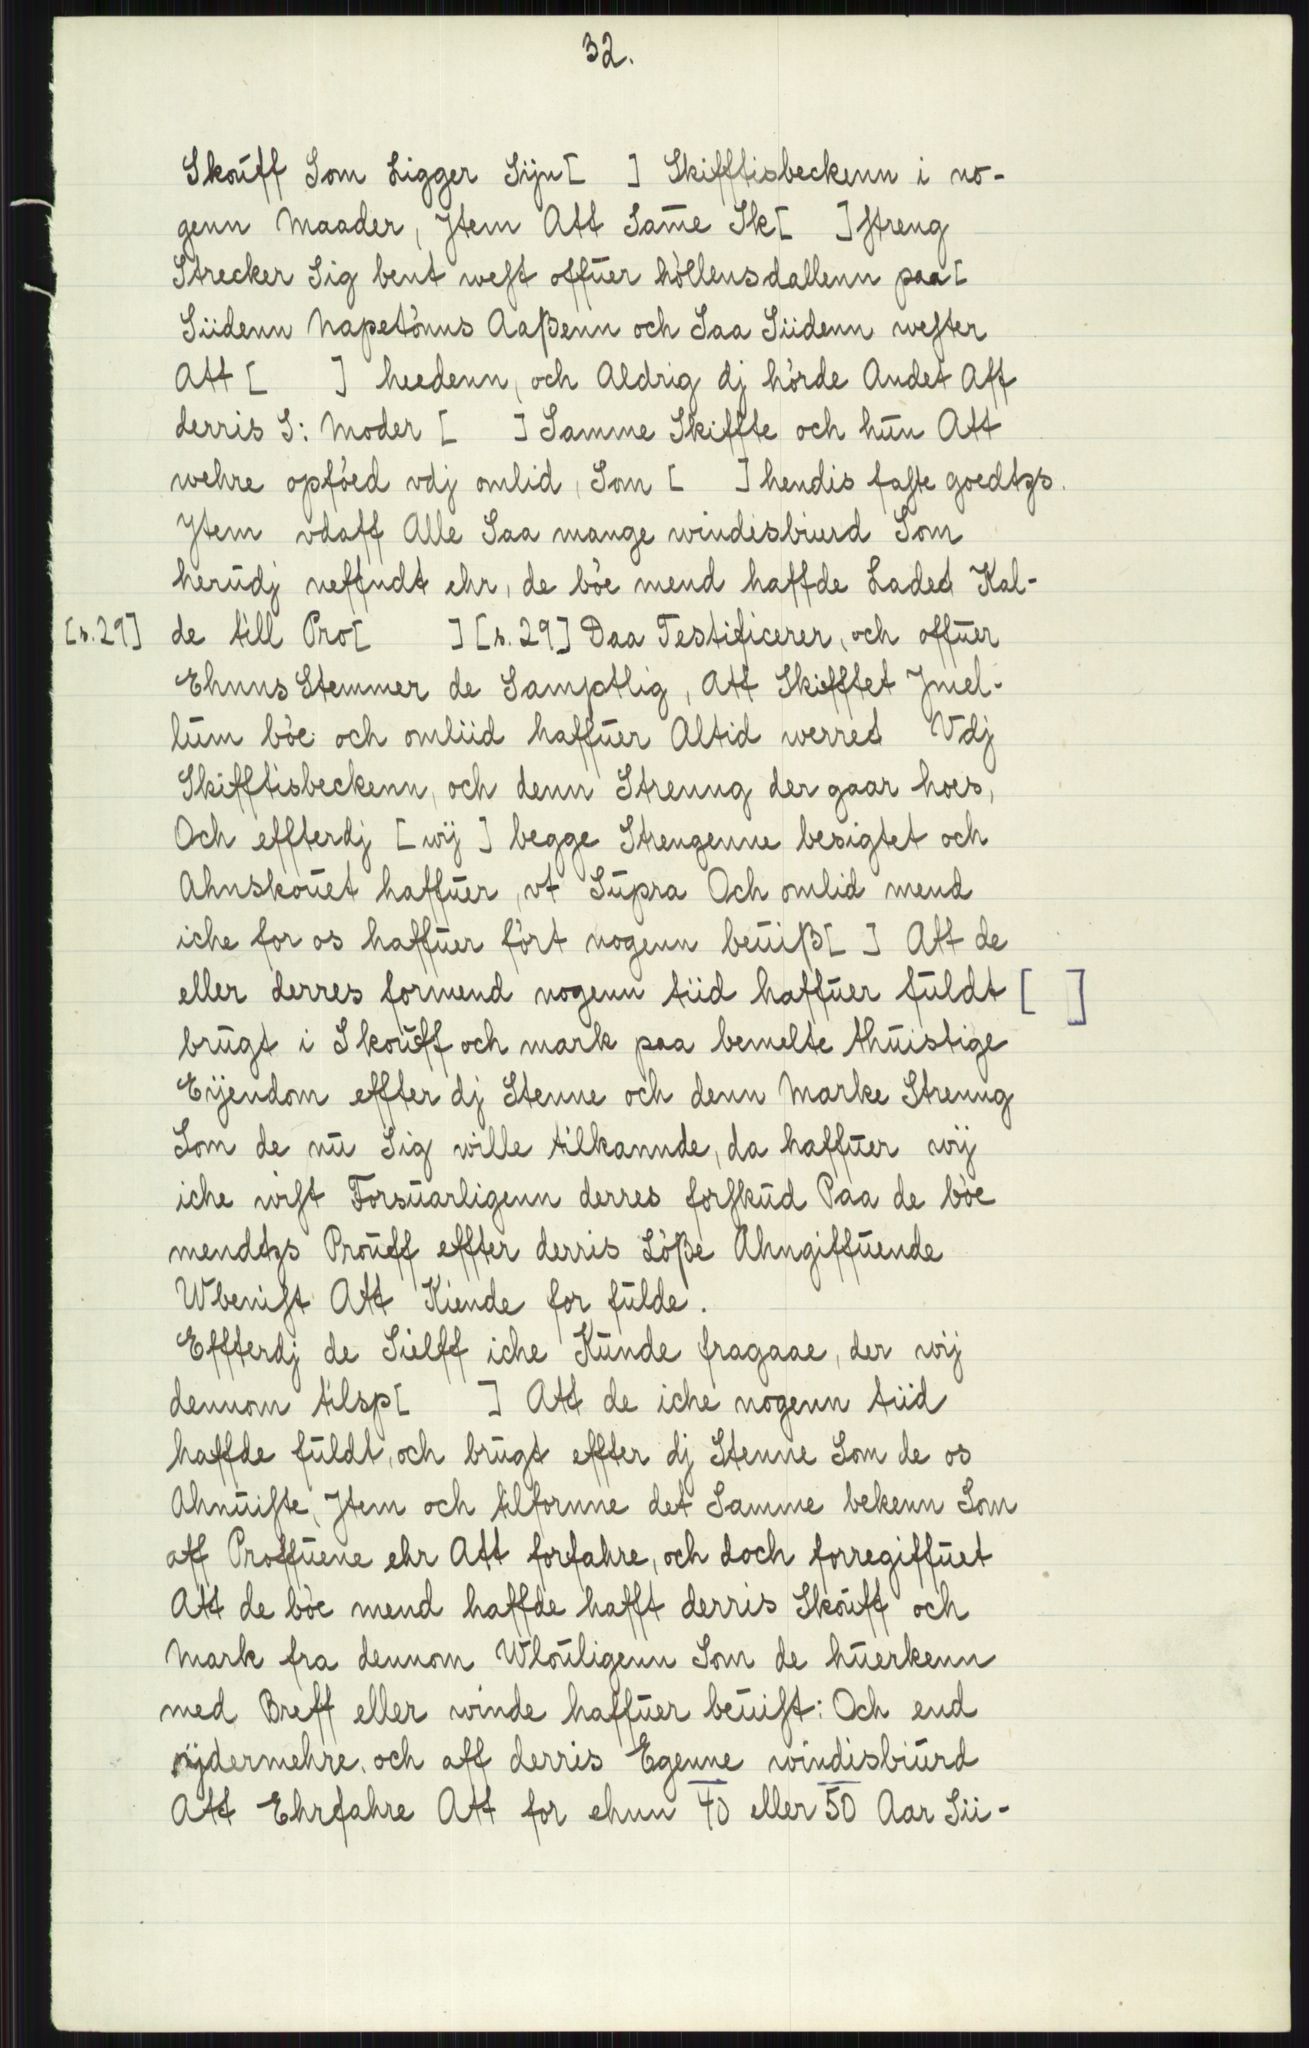 32.
Skouff Som Ligger Sijn [ ] Skifftisbeckenn i no-
genn Maader, Jtem Att Same Sk[ ]streng
Strecker Sig bent west offuer höllensdallenn paa [
Siidenn Napetönns Aaßenn och Saa Siidenn wester
Att [ ] heedenn, och Aldrig dj hörde Andet Aff
derris S: Moder [ ] Samme Skiffte och hun Att
wehre opföed vdj omlid, Som [ ] hendis faste goedtzs.
Jtem vdaff Alle Saa mange windisbiurd Som
herudj neffndt ehr, de böe mend haffde Laded Kal-
[s. 29] de till Pro[ ] [s. 29] Daa Testificerer, och offuer
Ehnns Stemmer de Samptlig, Att Skifftet Jmel-
lum böe och omliid haffuer Altid werred Vdj
Skifftisbeckenn, och denn Strenng der gaar hoes,
Och effterdj [wij] begge Strengenne besigtet och
Ahnskouet haffuer, vt Supra Och omlid mend
iche for os haffuer fört nogenn beuiß[ ] Att de
eller derres formend nogenn tiid haffuer fuldt [ ]
brugt i Skouff och mark paa bemelte thuistige
Eijendom effter dj Stenne och denn Marke Strenng
Som de nu Sig wille tilkannde, da haffuer wij
iche wist Forsuarligenn derres forskud Paa de böe
mendtzs Prouff effter derris Löße Ahngiffuende
Wbenist Att Kiende for fulde.
Effterdj de Sielff iche Kunde fragaae, der wij
dennom tilsp[ ] Att de iche nogenn tiid
haffde fuldt, och brugt effter dj Stenne Som de os
Ahnuiste, Jtem och tilfornne det Samme bekenn Som
aff Proffuene ehr Att forfahre, och doch forregiffuet
Att de böe mend haffde hafft derris Skouff och
Mark fra dennom Wlouligenn Som de huerkenn
med Breff eller winde haffuer beuist: Och end
ÿdermehre, och aff derris Egenne windisbiurd
Att Ehrfahre Att for ehnn 40 eller 50 Aar Sii-